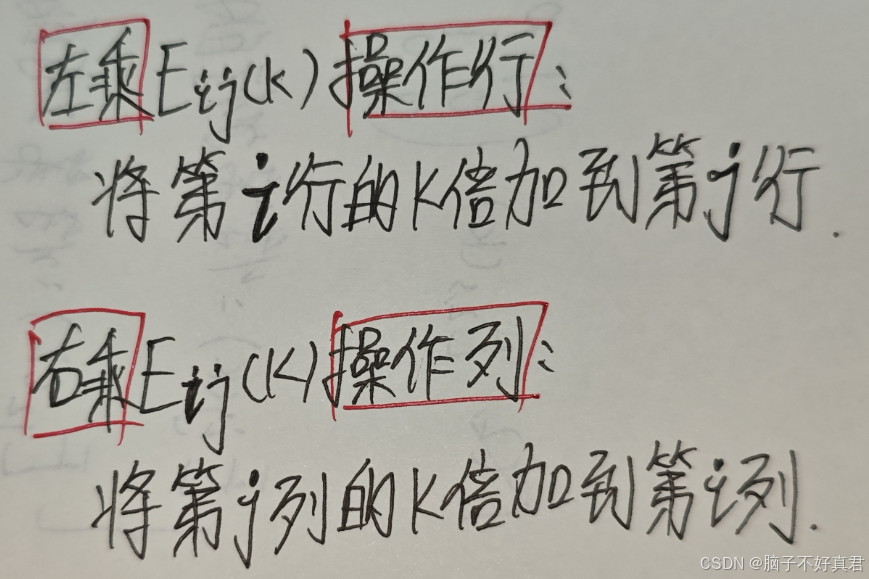 左乘Eij(k)操作行：
将第i行的K倍加到第j行.
右乘Eij(K)操作列：
将第j列的K倍加到第i列.
CSDN @脑子不好真君